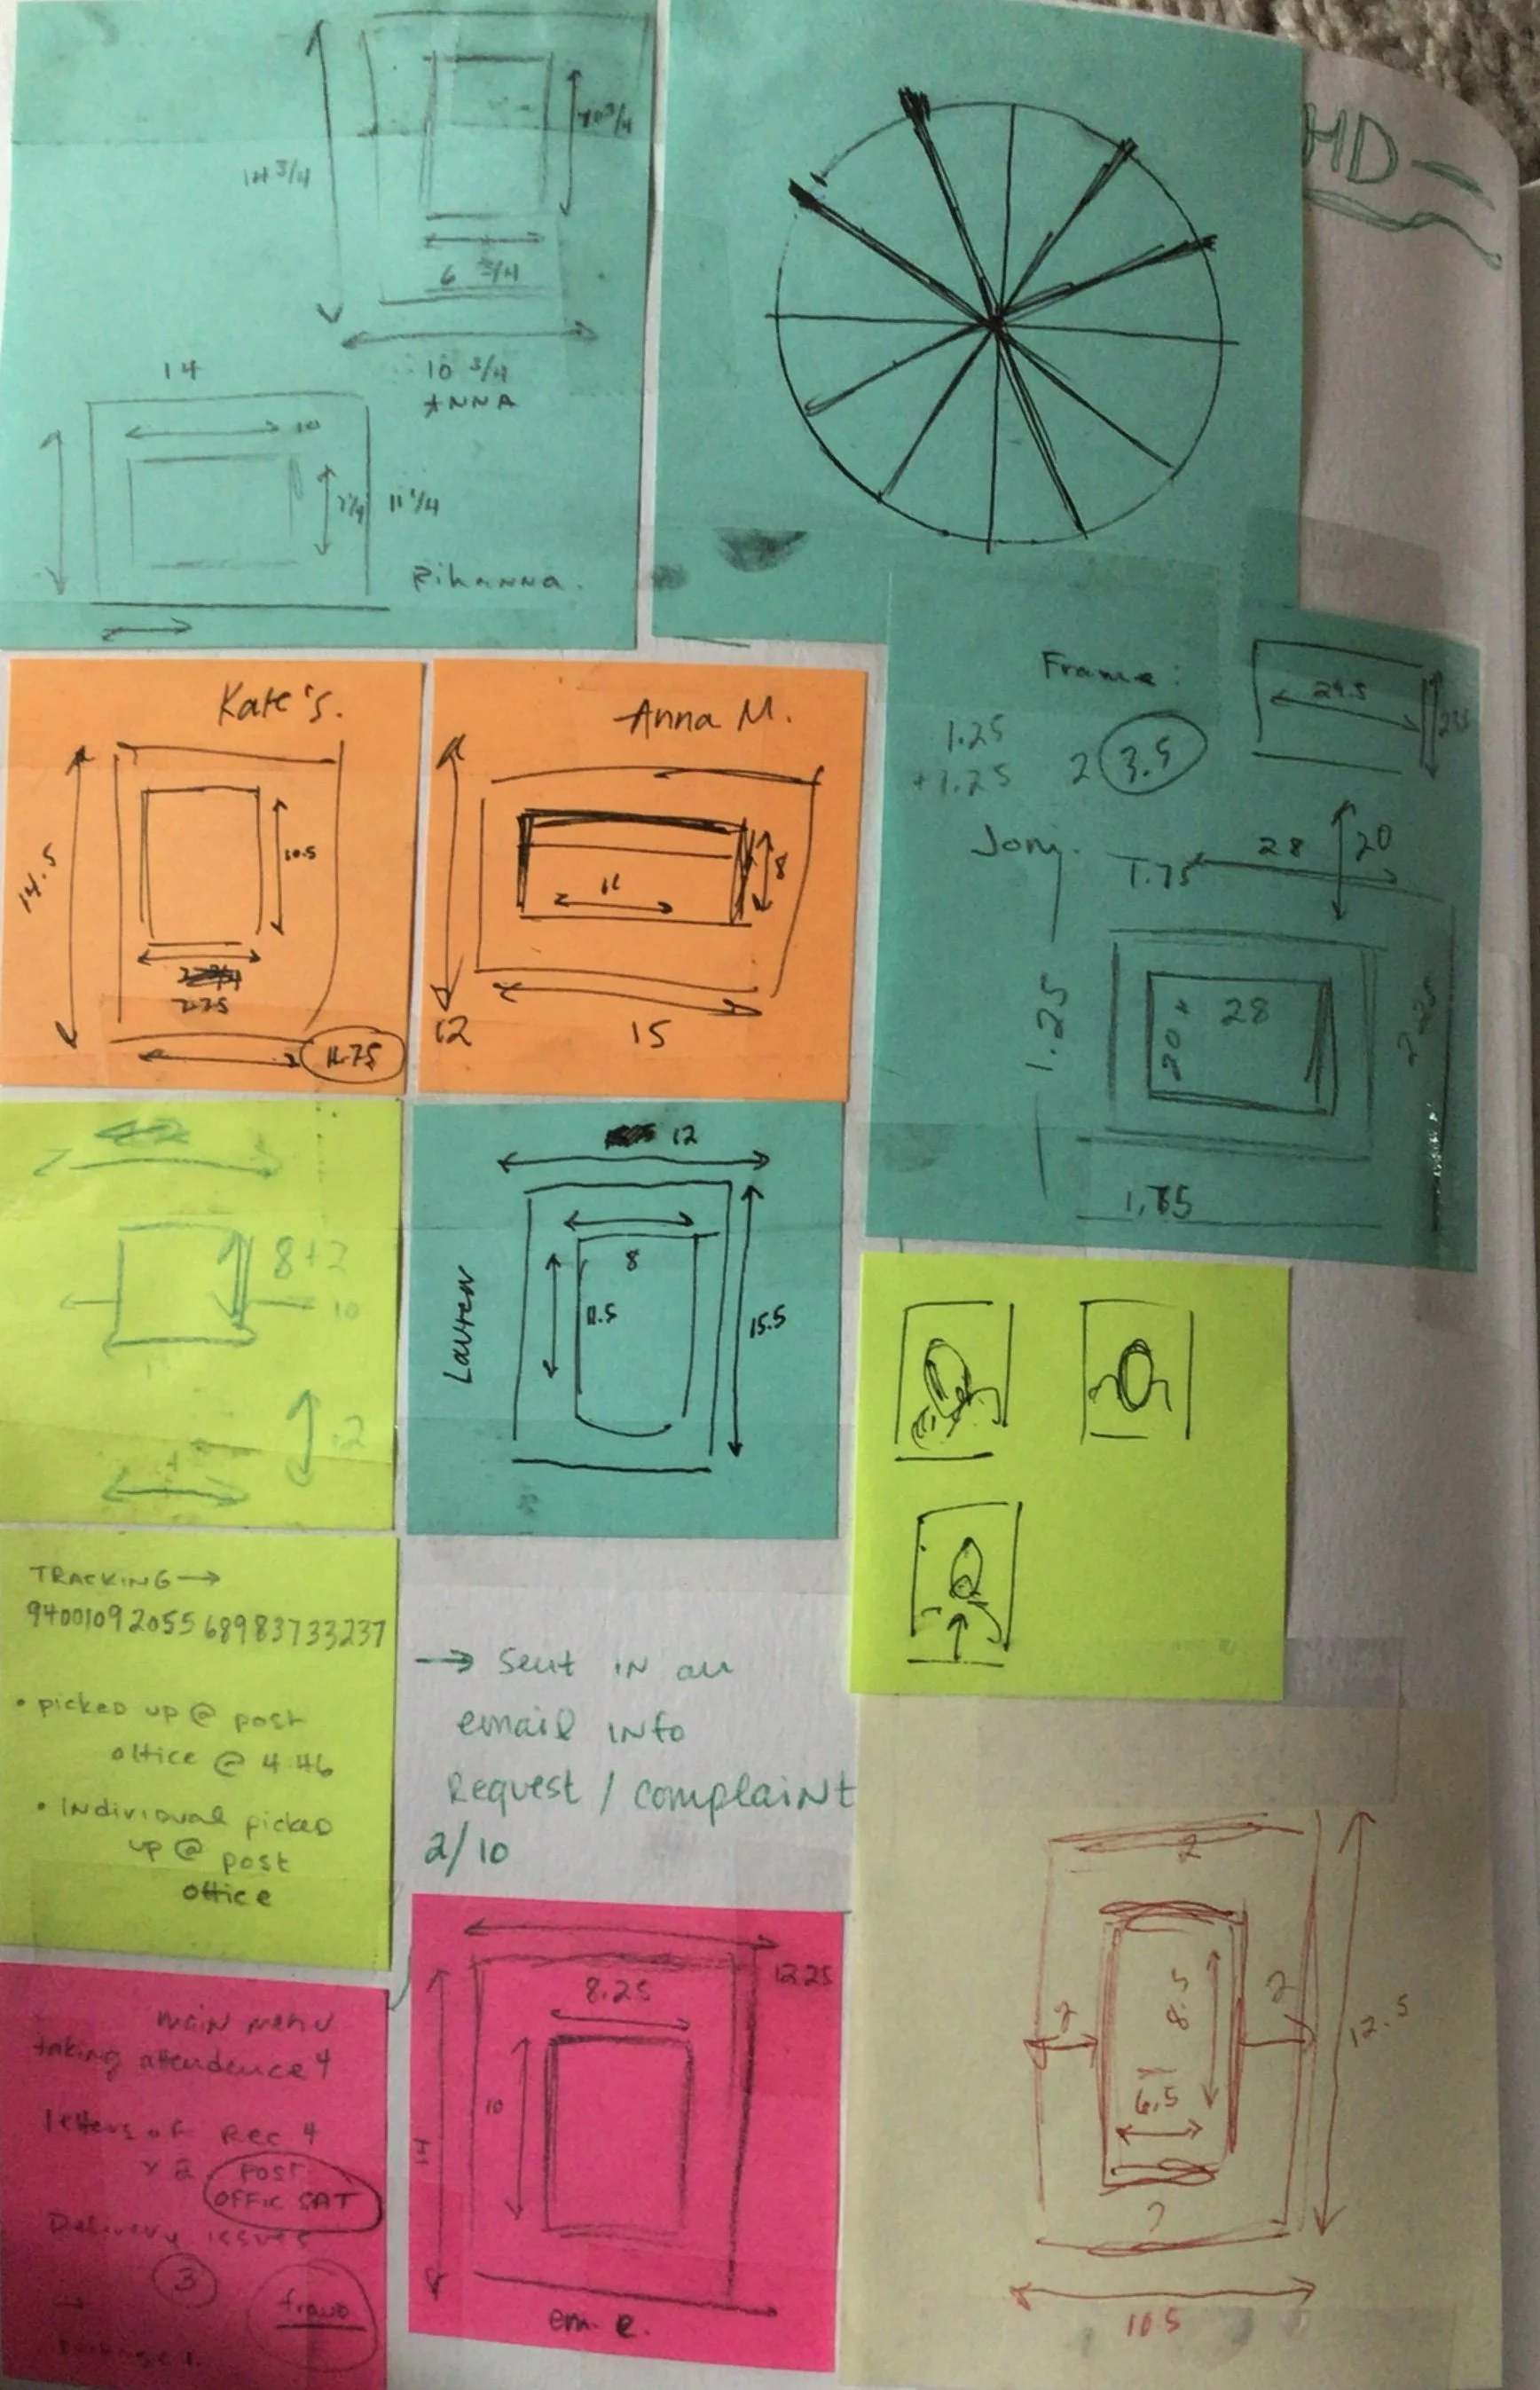 14 3/4
10 3/4
6 3/4
10 3/4
ANNA
14
10
7 1/4
11 1/4
Rihanna.
HD -
Kate's.
14.5
10.5
7.75
11.75
Anna M.
8
11
12
15
Frame:
24.5
1.25
+1.25
2 3.5
Jony.
28
20
1.25
20 x 28
1.75
8+2
10
12
12
8
11.5
15.5
Lauren
TRACKING →
9400109205568983733237
• picked up @ post
office @ 4:46
• Individual picked
up @ post
office
→ Sent in an
email info
Request / complaint
2/10
main menu
taking attendence 4
letters of Rec 4
x 2 POST
OFFIC SAT
Delivery issues
3
fraud
12.25
8.25
10
14
em. e.
2
2
2
8.5
6.5
2
12.5
10.5